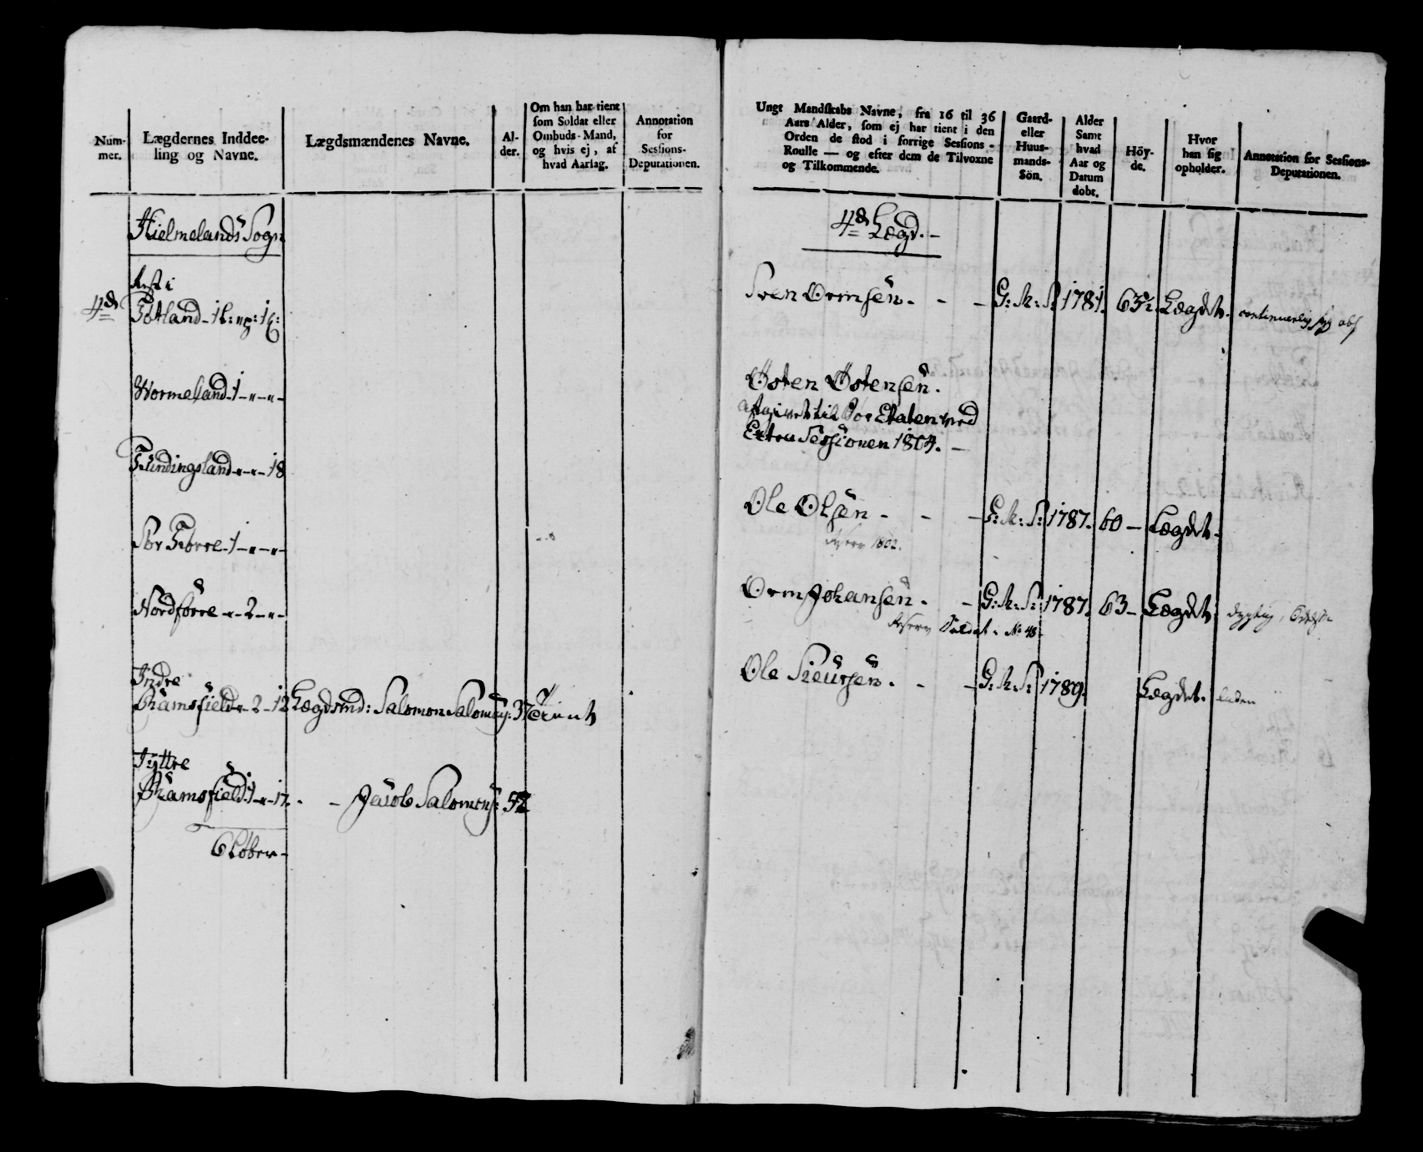 Num-
mer.
Lægdernes Inddee-
ling og Navne.
Lægdsmændenes Navne.
Al-
der.
Om han har tient
som Soldat eller
Ombuds-Mand,
og hvis ej, af
hvad Aarsag.
Annotation
for
Sessions-
Deputationen.
Hielmelands Sogn
4de
Fotland - 1
Wormeland - 1 - " - " -
Fundingsland - " - 18
Sør Førre - 1 - " - " -
Nordførre - " - 2 - " -
Indre
Ramsfield - 2 - 12
Lægdsmd: Salomon Salomons: 37 Tient
Yttre
Ramsfield 1 - " - 17.
- Jacob Salomons: 52
6 Løber -
Ungt Mandskabs Navne, fra 16 til 36
Aars Alder, som ej har tient i den
Orden de stod i forrige Sessions-
Roulle — og efter dem de Tilvoxne
og Tilkommende.
Gaard-
eller
Huus-
mands-
Sön.
Alder
Samt
hvad
Aar og
Datum
dobt.
Höy-
de.
Hvor
han sig
opholder.
Annotation for Sessions-
Deputationen.
4de Lægd. -
Sven Ormsen. - - G: M: S: 1781. 63½. Lægdet.
Østen Østensen.
afgivet til Søe Etaten ved
Extra Sessionen 1804. -
Ole Olsen - - - G: M: S: 1787. 60 - Lægdet -
1802.
Orm Johansen. - G: M: S: 1787. 63 - Lægdet dygtig,
Reserv Soldat. No 48.
Ole Sieursen. - - G: M: S: 1789. Lægdet. liden